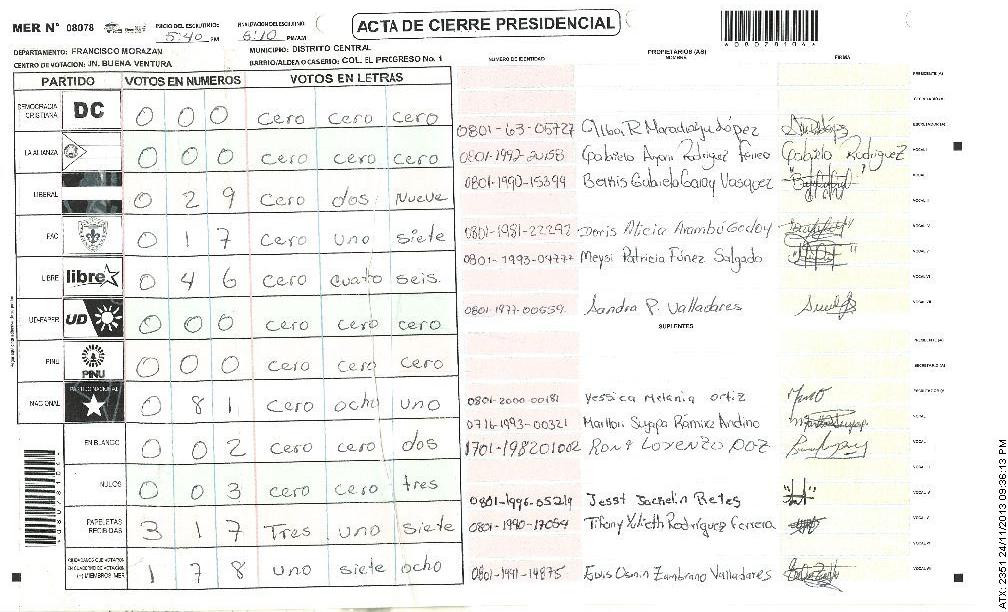 MER N° 08078
INICIO DEL ESCRUTINIO:
5:40 PM
FINALIZACION DEL ESCRUTINIO
6:10 PM/AM
ACTA DE CIERRE PRESIDENCIAL
*08078104*
DEPARTAMENTO: FRANCISCO MORAZAN
MUNICIPIO: DISTRITO CENTRAL
CENTRO DE VOTACION: JN. BUENA VENTURA
BARRIO/ALDEA O CASERIO: COL. EL PROGRESO No. 1
PARTIDO VOTOS EN NUMEROS VOTOS EN LETRAS
DEMOCRACIA CRISTIANA DC 0 0 0 cero cero cero
LA ALIANZA 0 0 0 cero cero cero
LIBERAL 0 2 9 cero dos nueve
PAC 0 1 7 cero uno siete
LIBRE libre 0 4 6 cero cuatro seis.
UD-FAPER UD 0 0 0 cero cero cero
PINU PINU 0 0 0 cero cero cero
NACIONAL PARTIDO NACIONAL 0 8 1 cero ocho uno
EN BLANCO 0 0 2 cero cero dos
NULOS 0 0 3 cero cero tres
PAPELETAS RECIBIDAS 3 1 7 Tres uno siete
CIUDADANOS QUE VOTARON EN CUADERNO DE VOTACION (+) MIEMBROS MER 1 7 8 uno siete ocho
PROPIETARIOS (AS)
NUMERO DE IDENTIDAD NOMBRE FIRMA
PRESIDENTE (A)
SECRETARIO (A)
0801-63-05727 Alba R Maradiaga López ESCRUTADOR (A)
0801-1992-20158 Gabriela Rodriguez Gabriela Rodriguez VOCAL I
0801-1990-15399 Berkis Gabriela Garay Vasquez
0801-1981-22292 Doris Alicia Arambú Godoy VOCAL IV
0801-1993-04777 Meysi Patricia Fúnez Salgado VOCAL V
VOCAL VI
0801-1977-00559 Sandra P. Valladares VOCAL VII
SUPLENTES
PRESIDENTE (A)
SECRETARIO (A)
0801-2000-00181 Yessica Melania Ortiz ESCRUTADOR (A)
0716-1993-00321 Marllon Suyapa Ramirez Andino
1701-198201002 Rony Lorenzo
0801-1996-05219 Jesst Jackelin Retes
0801-1990-17054 Tifany Yulieth Rodriguez Ferrera VOCAL V
VOCAL VI
0801-1991-14875 Elvis Osmin Zambrano Valladares VOCAL VII
ATX: 2351 24/11/2013 09:36:13 PM